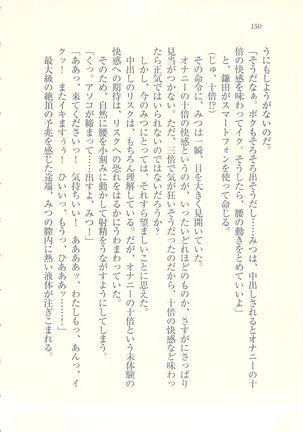 150
うにもしようがないのだ。
「そうだなぁ。ボクもそろそろ出そうだし……みつは、中出しされるとオナニーの十
倍の快感を味わってイク。そうしたら、腰の動きをとめていいよ」
と、鎌田がスマートフォンを使って命じる。
(じゅ、十倍!?)
その命令に、みつは一瞬、目を大きく見開いていた。
オナニーの十倍の快感というのが、いったいどれほどのものか、さすがにさっぱり
見当がつかない。ただ、三倍で気が狂いそうだったのだから、十倍の快感など味わっ
たら正気ではいられないのではないだろうか?
しかし、今のみつにとっては、それすら望ましいことに思えた。
中出しのリスクは、もちろん理解している。だが、オナニーの十倍という未体験の
快感への期待は、リスクへの恐れをはるかにうわまわっていた。
そのため、自然に腰を小刻みに動かして射精をうながすようにしてしまう。
「くっ。アソコが締まって……出すよ、みつ!」
「ああっ、来てくださいっ! 気持ちいい! ああああっ、わたしもっ、あんっ、イ
クッ! またイキますぅぅ! ひいいっ、もうっ、ひああああッ……!」
最大級の絶頂の予兆を感じた途端、みつの膣内に熱い液体が注ぎこまれる。